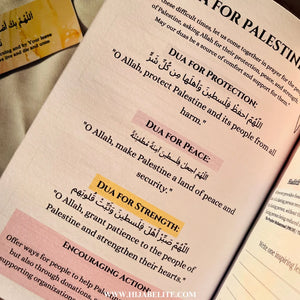 DUA FOR PALESTIN
these difficult times, let us come together in prayer for the people
of Palestine, asking Allah for their protection, peace, and strength.
May our duas be a source of comfort and support for them."
DUA FOR PROTECTION:
اللَّهُمَّ احْفَظْ فِلَسْطِينَ وَأَهْلَهَا مِنْ كُلِّ ضُرٍّ
"O Allah, protect Palestine and its people from all
harm."
DUA FOR PEACE:
اللَّهُمَّ اجْعَلْ فِلَسْطِينَ آمِنَةً مُطْمَئِنَّةً
"O Allah, make Palestine a land of peace and
security."
DUA FOR STRENGTH:
اللَّهُمَّ صَبِّرْ أَهْلَ فِلَسْطِينَ وَثَبِّتْ قُلُوبَهُم
"O Allah, grant patience to the people of
Palestine and strengthen their hearts."
ENCOURAGING ACTION
Offer ways for people to help Pales
but also through donations,
supporting organisations
WWW.HIJABELITE.COM